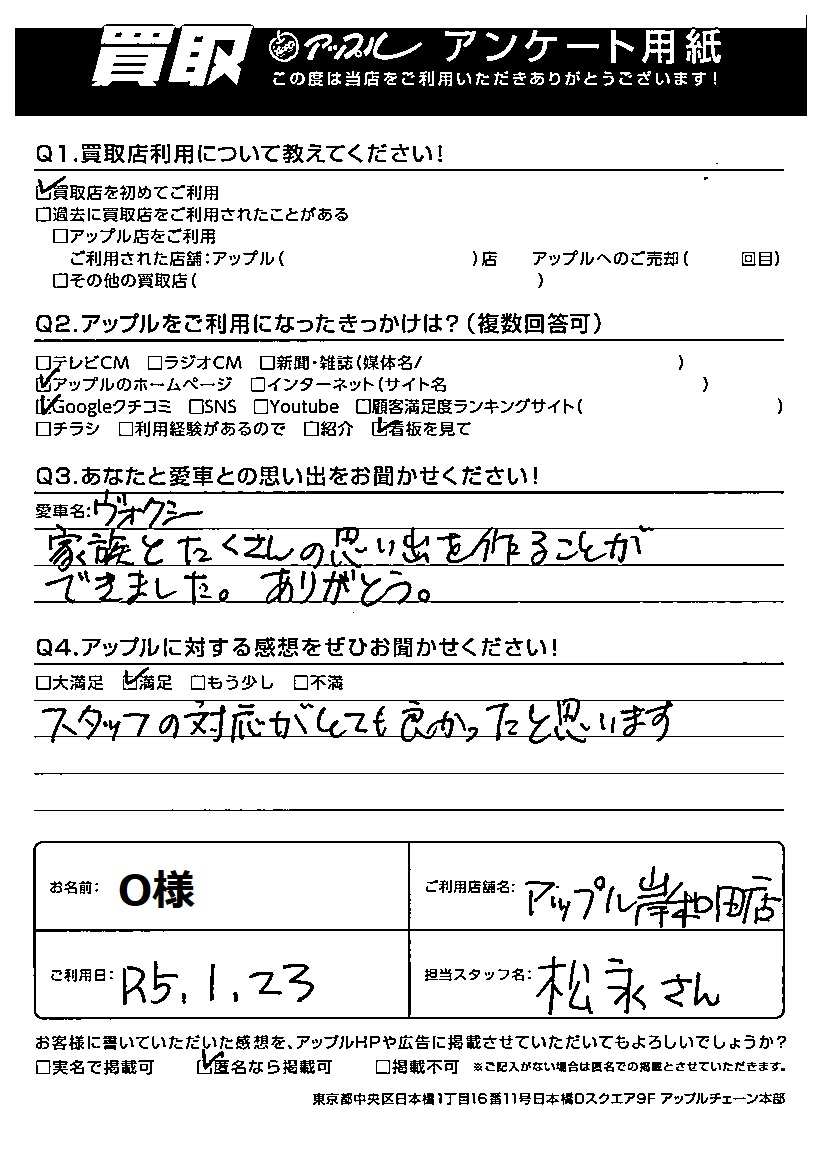 買取 アップル アンケート用紙
この度は当店をご利用いただきありがとうございます!
Q1.買取店利用について教えてください!
☑買取店を初めてご利用
□過去に買取店をご利用されたことがある
□アップル店をご利用
ご利用された店舗:アップル( )店 アップルへのご売却( 回目)
□その他の買取店( )
Q2.アップルをご利用になったきっかけは?(複数回答可)
□テレビCM □ラジオCM □新聞・雑誌(媒体名/ )
☑アップルのホームページ □インターネット(サイト名 )
☑Googleクチコミ □SNS □Youtube □顧客満足度ランキングサイト( )
□チラシ □利用経験があるので □紹介 ☑看板を見て
Q3.あなたと愛車との思い出をお聞かせください!
愛車名:ヴォクシー
家族とたくさんの思い出を作ることが
できました。ありがとう。
Q4.アップルに対する感想をぜひお聞かせください!
□大満足 ☑満足 □もう少し □不満
スタッフの対応がとても良かったと思います
お名前: O様
ご利用店舗名: アップル岸和田店
ご利用日: R5.1.23
担当スタッフ名: 松永さん
お客様に書いていただいた感想を、アップルHPや広告に掲載させていただいてもよろしいでしょうか?
□実名で掲載可 ☑匿名なら掲載可 □掲載不可 ※ご記入がない場合は匿名での掲載とさせていただきます。
東京都中央区日本橋1丁目16番11号日本橋Dスクエア9F アップルチェーン本部